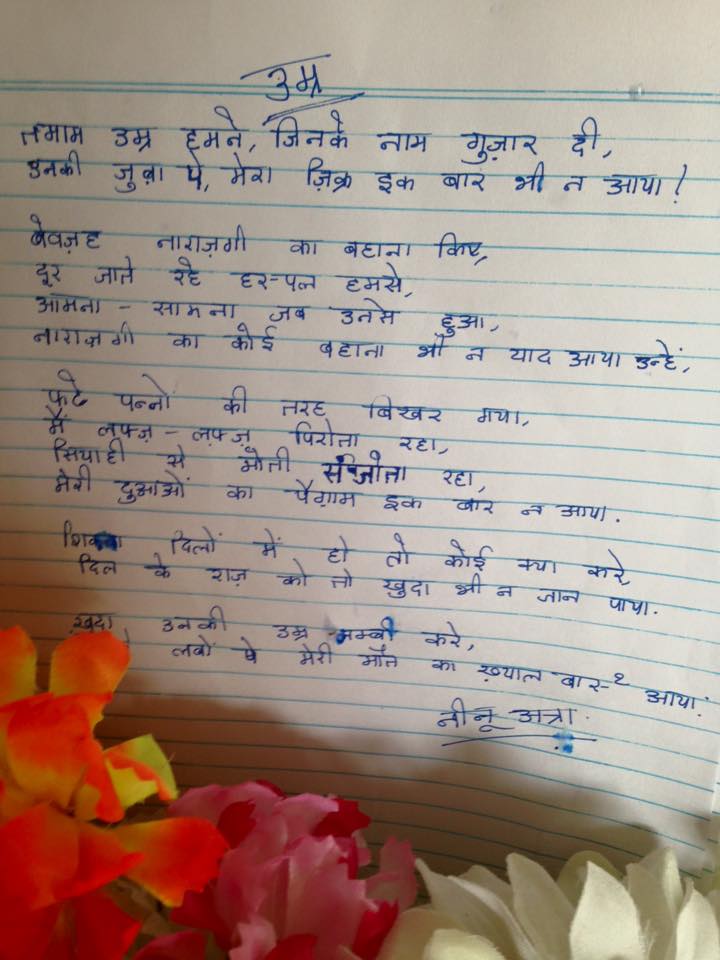 उम्र
तमाम उम्र हमने, जिनके नाम गुज़ार दी,
उनकी जुबा़ पे, मेरा ज़िक्र इक बार भी न आया!
बेवज़ह नाराज़गी का बहाना किए,
दूर जाते रहे हर-पल हमसे,
आमना - सामना जब उनसे हुआ,
नाराज़गी का कोई बहाना भी न याद आया उन्हें,
फटे पन्नो की तरह बिखर गया,
मैं लफ्ज़ - लफ्ज़ पिरोता रहा,
सियाही से मोती संजोता रहा,
मेरी दुआओं का पैग़ाम इक बार न आया.
दिलों में हो तो कोई क्या करे,
दिल के राज़ को तो ख़ुदा भी न जान पाया.
ख़ुदा उनकी उम्र लम्बी करे,
लबों पे मेरी मौत का ख़्याल बार-२ आया.
नीनू अत्रा.